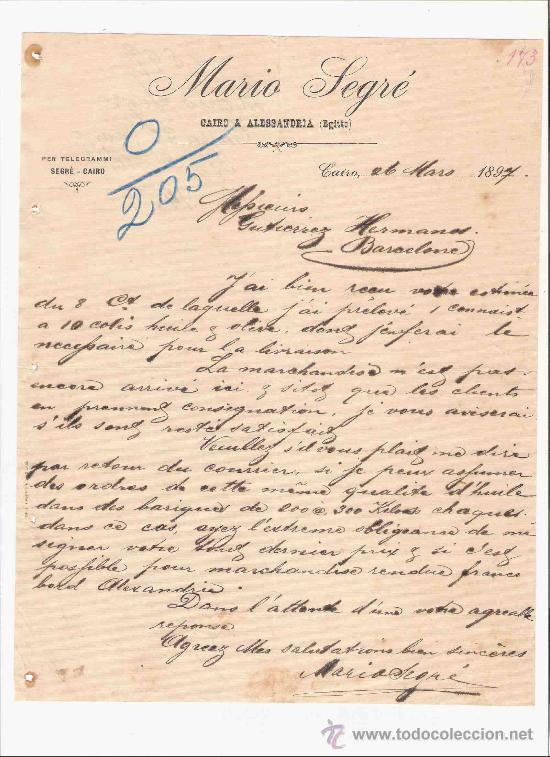 173
Mario Segré
CAIRO & ALESSANDRIA (Egitto)
0
205
PER TELEGRAMMI
SEGRÈ - CAIRO
Cairo, 26 Mars 1897.
Messieurs
Gutierrez Hermanos.
Barcelone
J'ai bien reçu votre estimée
du 8 Ct de laquelle j'ai prélevé 1 connaist
a 10 colis huile d'olive, dont j'enferai le
necessaire pour la livraison
La marchandise n'est pas
encore arrivé ici, & sitot que les clients
en prennent consignation, je vous aviserai
s'ils sont resté satisfait
Veuillez s'il vous plait me dire
par retour du courrier, si je peux assumer
des ordres de cette même qualité d'huile
dans des bariques de 200 @ 300 Kilos chaques
dans ce cas, ayez l'extreme obligeance de m
signer votre tout dernier prix & si c'est
possible pour marchandise rendue franco
bord Alexandrie.
Dans l'attente d'une votre agreable
reponse
Agreez Mes salutations bien sincères
Mario Segré
todocoleccion
www.todocoleccion.com